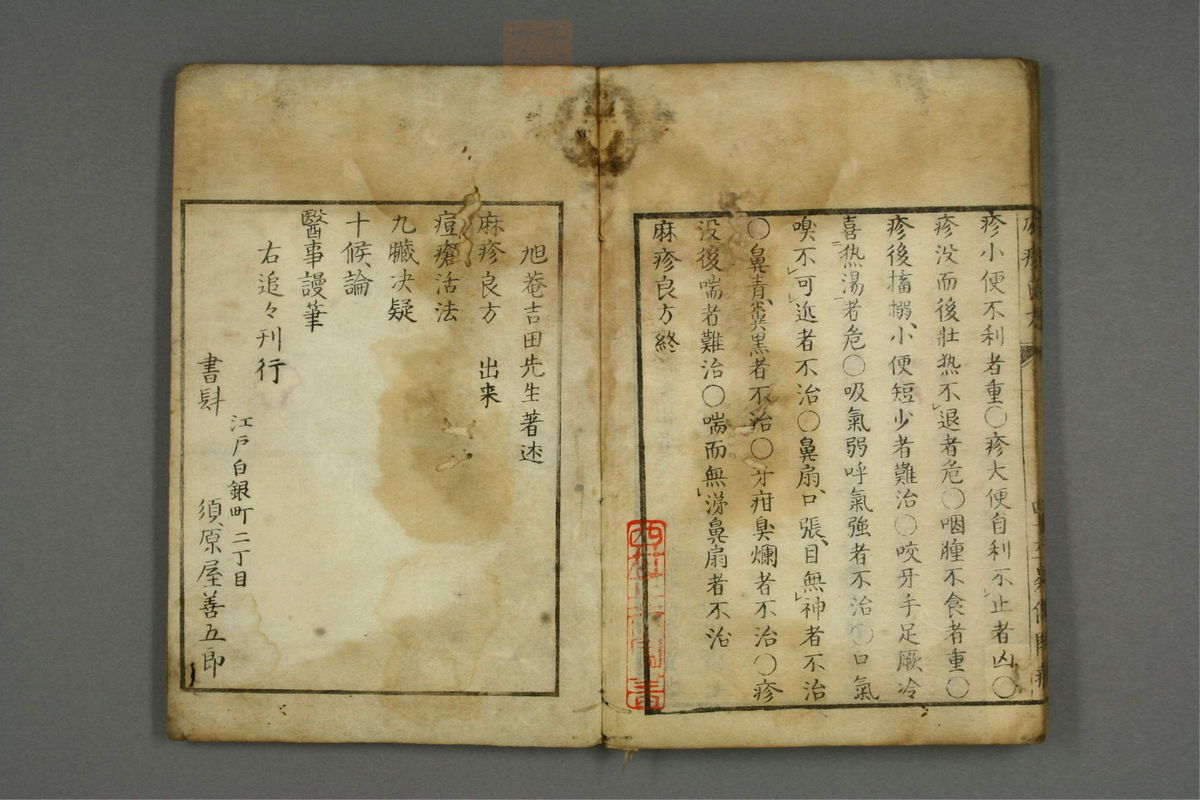 疹小便不利者重〇疹大便自利不止者凶〇
疹没而後壯热不退者危〇咽腫不食者重〇
疹後搐搦小便短少者難治〇咬牙手足厥冷
喜热湯者危〇吸氣弱呼氣強者不治〇口氣
嗅不可近者不治〇鼻扇口張目無神者不治
〇鼻青糞黒者不治〇牙疳臭爛者不治〇疹
没後喘者難治〇喘而無涕鼻扇者不治
麻疹良方終
旭菴吉田先生著述
麻疹良方 出来
痘瘡活法
九臓决疑
十候論
醫事謾筆
右追々刊行
江戸白銀町二丁目
書肆 須原屋善五郎